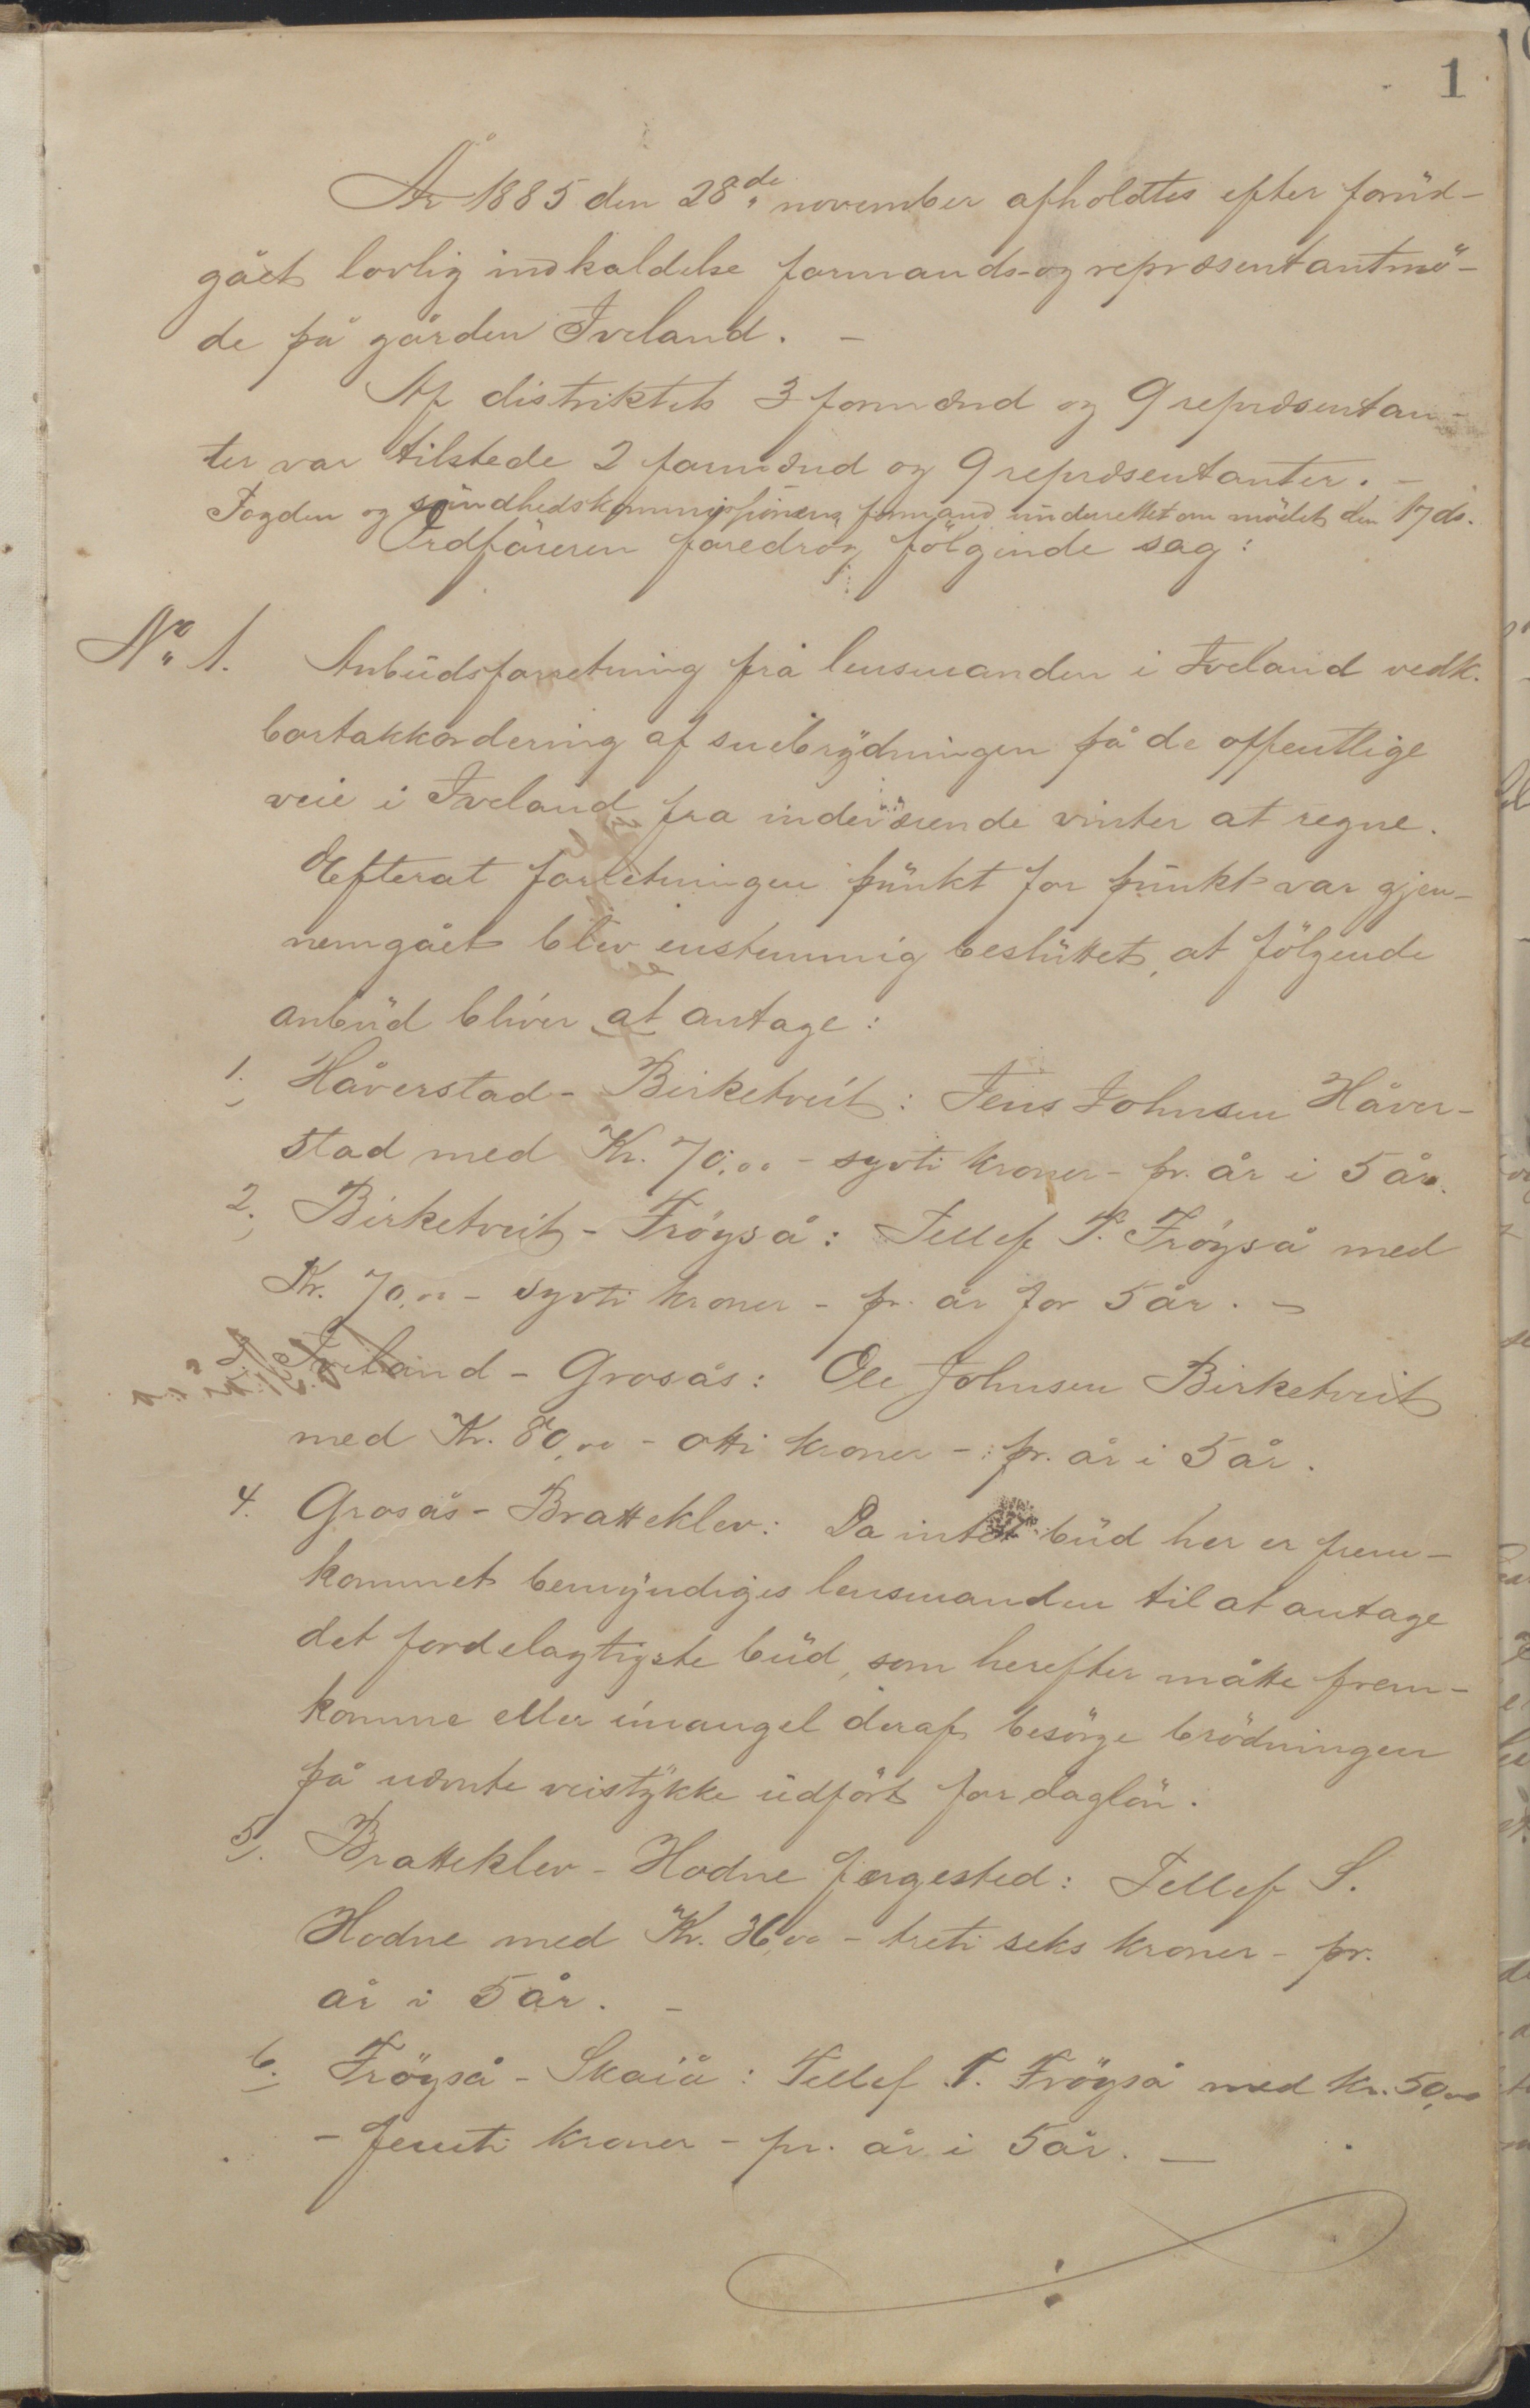 1
År 1885 den 28de november afholdtes efter forud-
gået lovlig indkaldelse formands- og repræsentantmö-
de på gården Iveland. -
Af distriktets 3 formænd og 9 repræsentan-
ter var tilstede 2 formænd og 9 repræsentanter. -
Fogden og sundhedskommissionens formand underrettet om mödet den 17 ds.
Ordföreren foredrog fölgende sag:
No 1. Anbudsforretning frå lensmanden i Iveland vedk.
bortakkordering af snebrydningen på de offentlige
veie i Iveland fra indeværende vinter at regne.
Efterat forretningen punkt for punkt var gjen-
nemgået blev enstemmig besluttet, at fölgende
anbud bliver at antage:
1. Håverstad - Birketveit: Jens Johnsen Håver-
stad med Kr. 70,00 - sytti kroner - pr. år i 5 år.
2. Birketveit - Fröyså: Tellef T. Fröyså med
Kr. 70,00 - sytti kroner - pr. år for 5 år. -
Iveland - Grosås: Ole Johnsen Birketveit
med Kr. 80,00 - otti kroner - pr. år i 5 år.
4. Grosås - Bratteklev: Da intet bud her er frem-
kommet bemyndiges lensmanden til at antage
det fordelagtigste bud, som herefter måtte frem-
komme eller i mangel deraf besörge brödningen
på nævnte veistykke udfört for daglön.
5. Bratteklev - Hodne færgested: Tellef S.
Hodne med Kr. 36,00 - treti seks kroner - pr.
år i 5 år. -
6. Fröyså - Skaiå: Tellef T. Fröyså med kr. 50,00
- femti kroner - pr. år i 5 år. -